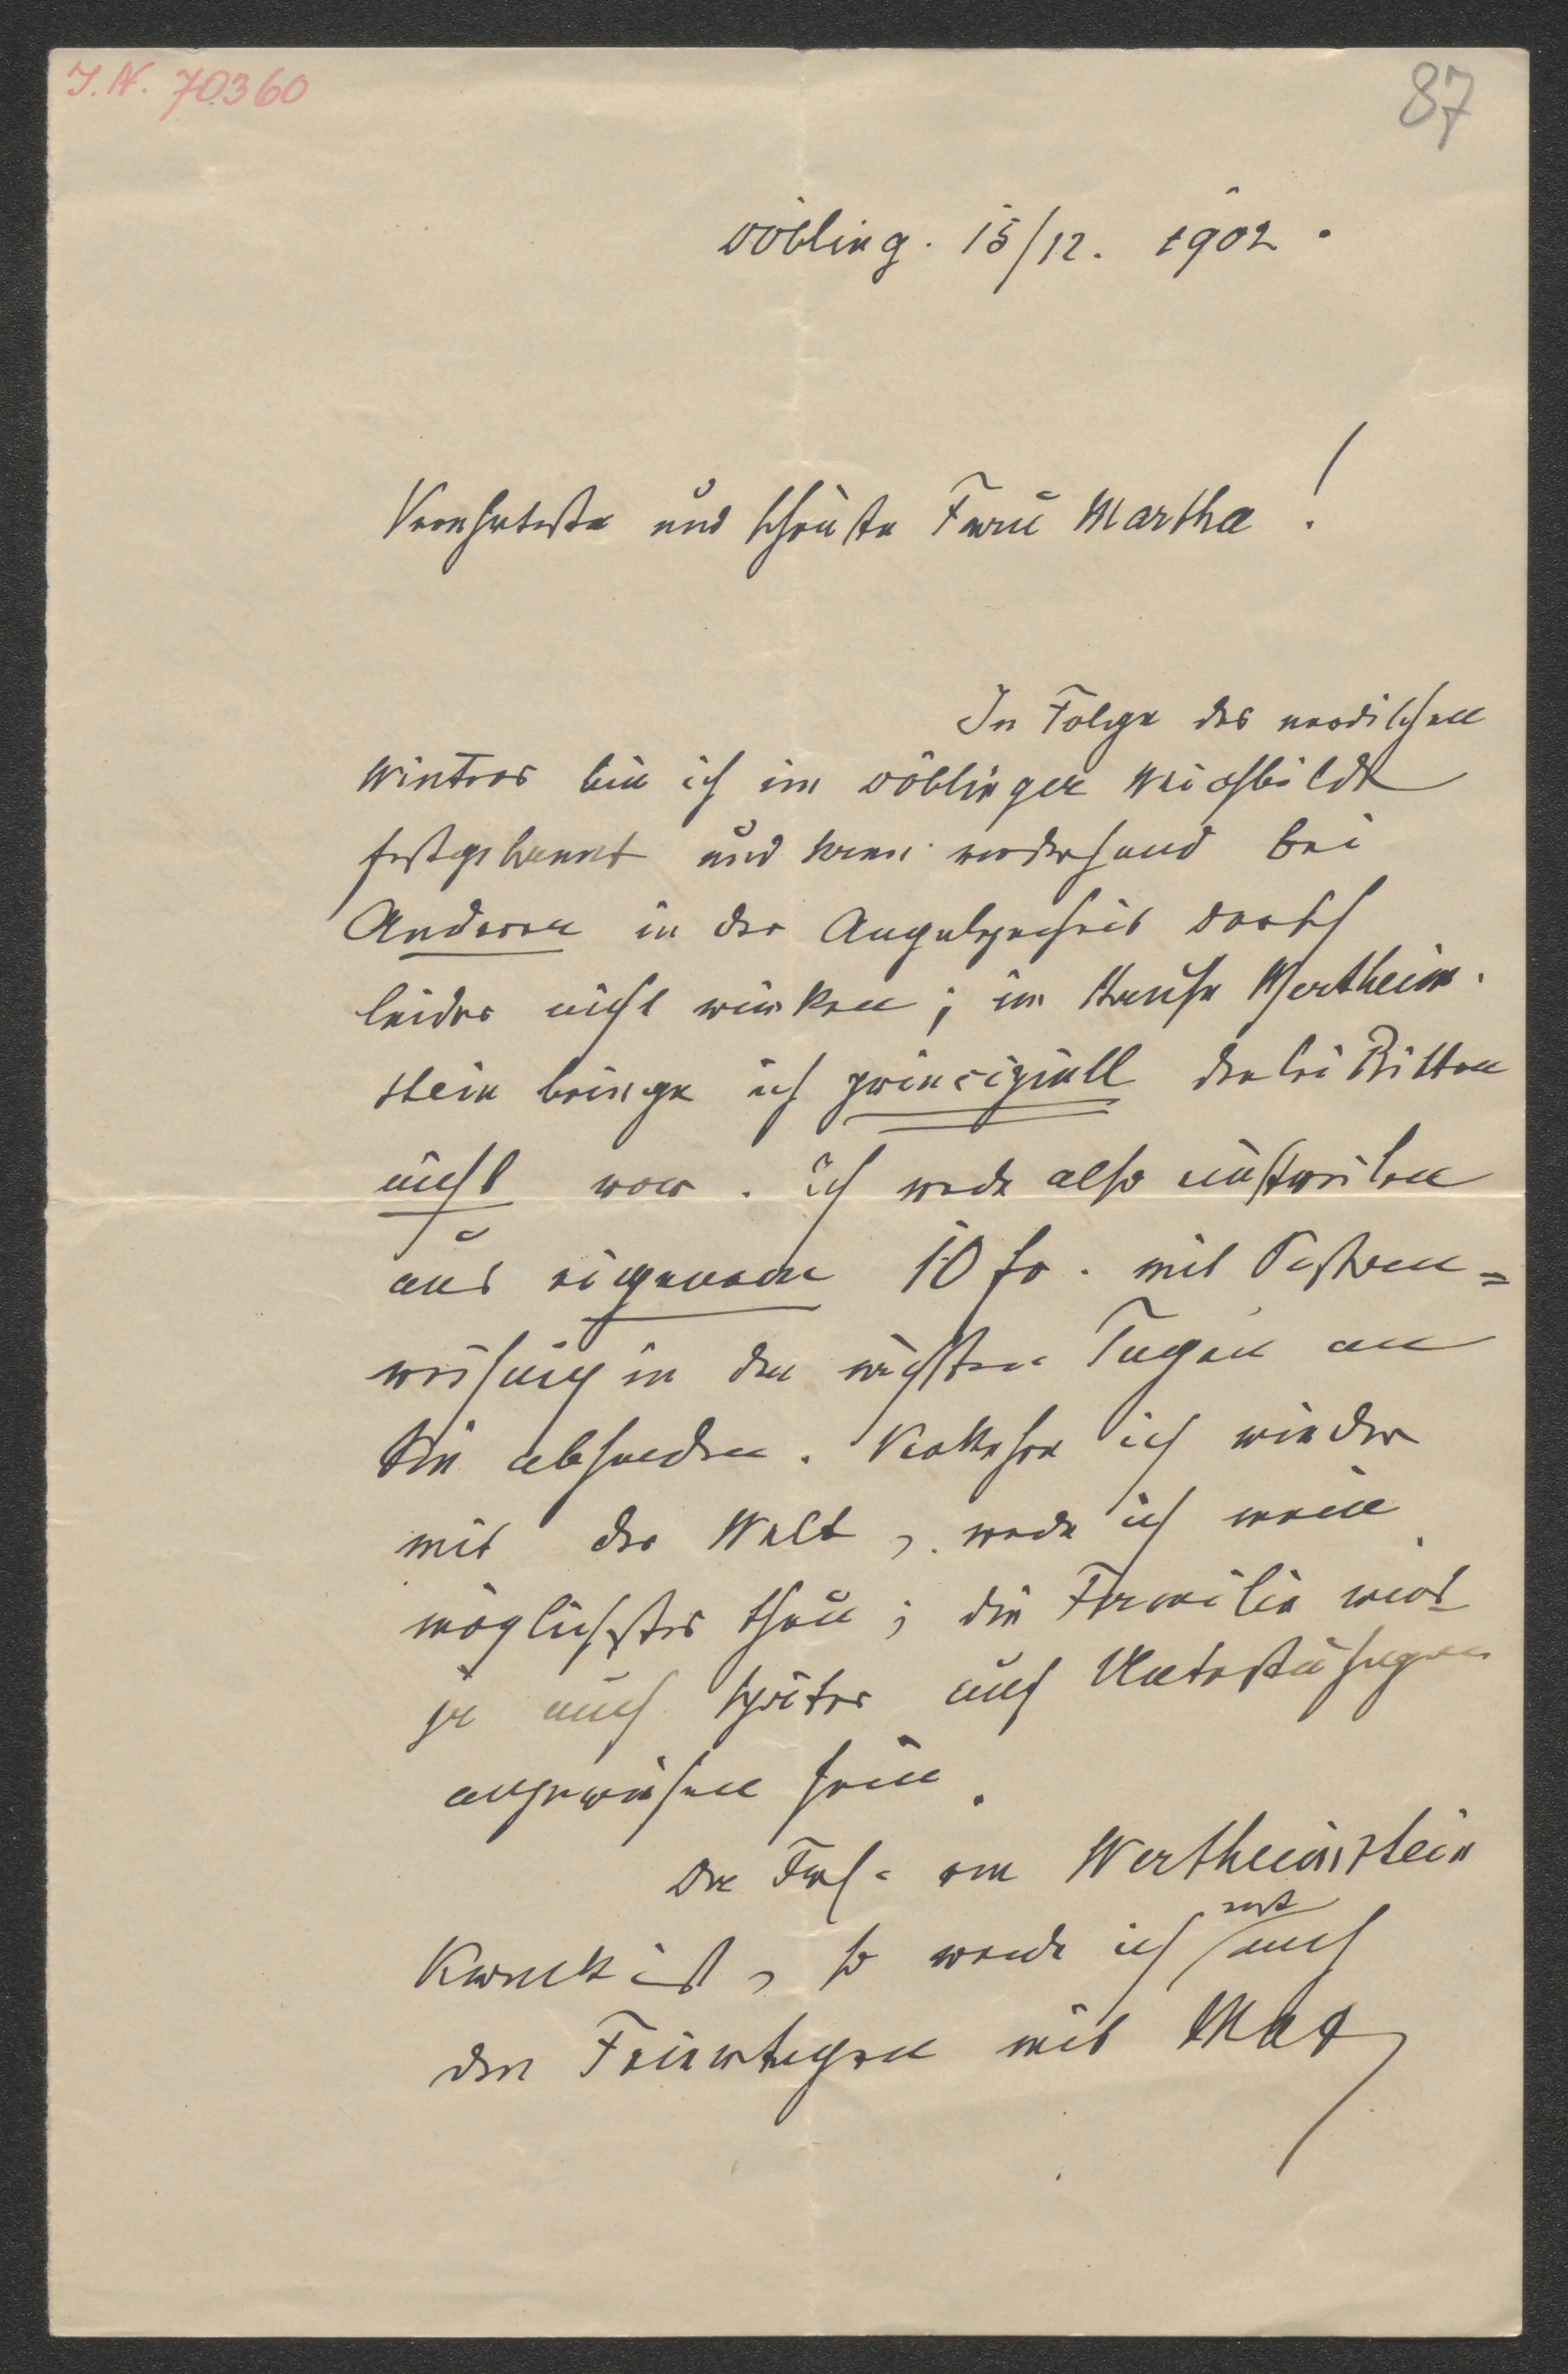 I. N. 70360
87
Döbling. 15/12. 1902.
Verehrteste und theuerste Frau Martha!
In Folge des nordischen
Winters bin ich im Döblinger Weichbilde
festgebannt und kann vorderhand bei
Anderen in der Angelegenheit
leider nicht wirken; im Hause Wertheim-
stein bringe ich principiell derlei Bitten
nicht vor. Ich werde also einstweilen
aus eigenem 10 fr. mit Postan=
weisung in den nächsten Tagen an
Sie absenden. Verkehre ich wieder
mit der Welt, werde ich mein
möglichstes thun; die Familie wird
ja auch später auf Unterstützungen
angewiesen sein.
Da Frl. von Wertheimstein
krank ist, so werde ich erst nach
den Feiertagen mit